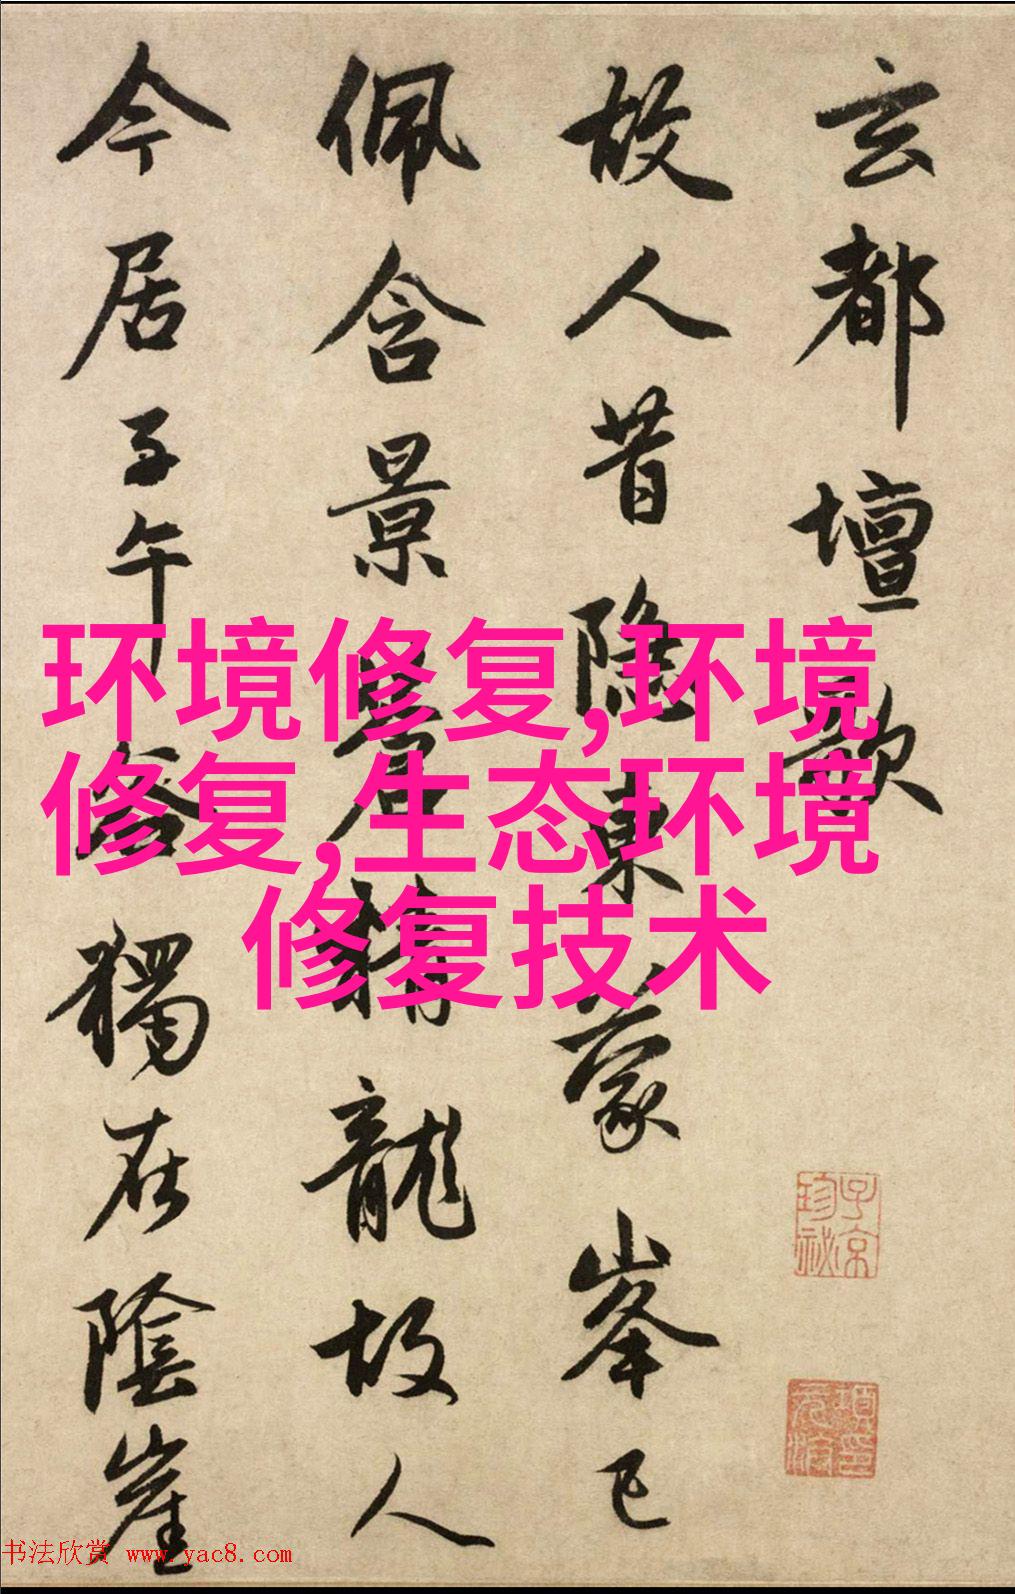 玄都壇歌
故人昔隱東蒙峯已
佩含景蒼精龍故人
今居子午谷獨在陰崖
环境修复,环境
修复,生态环境
修复技术
子京
珍祕
书法欣赏 www.yac8.com